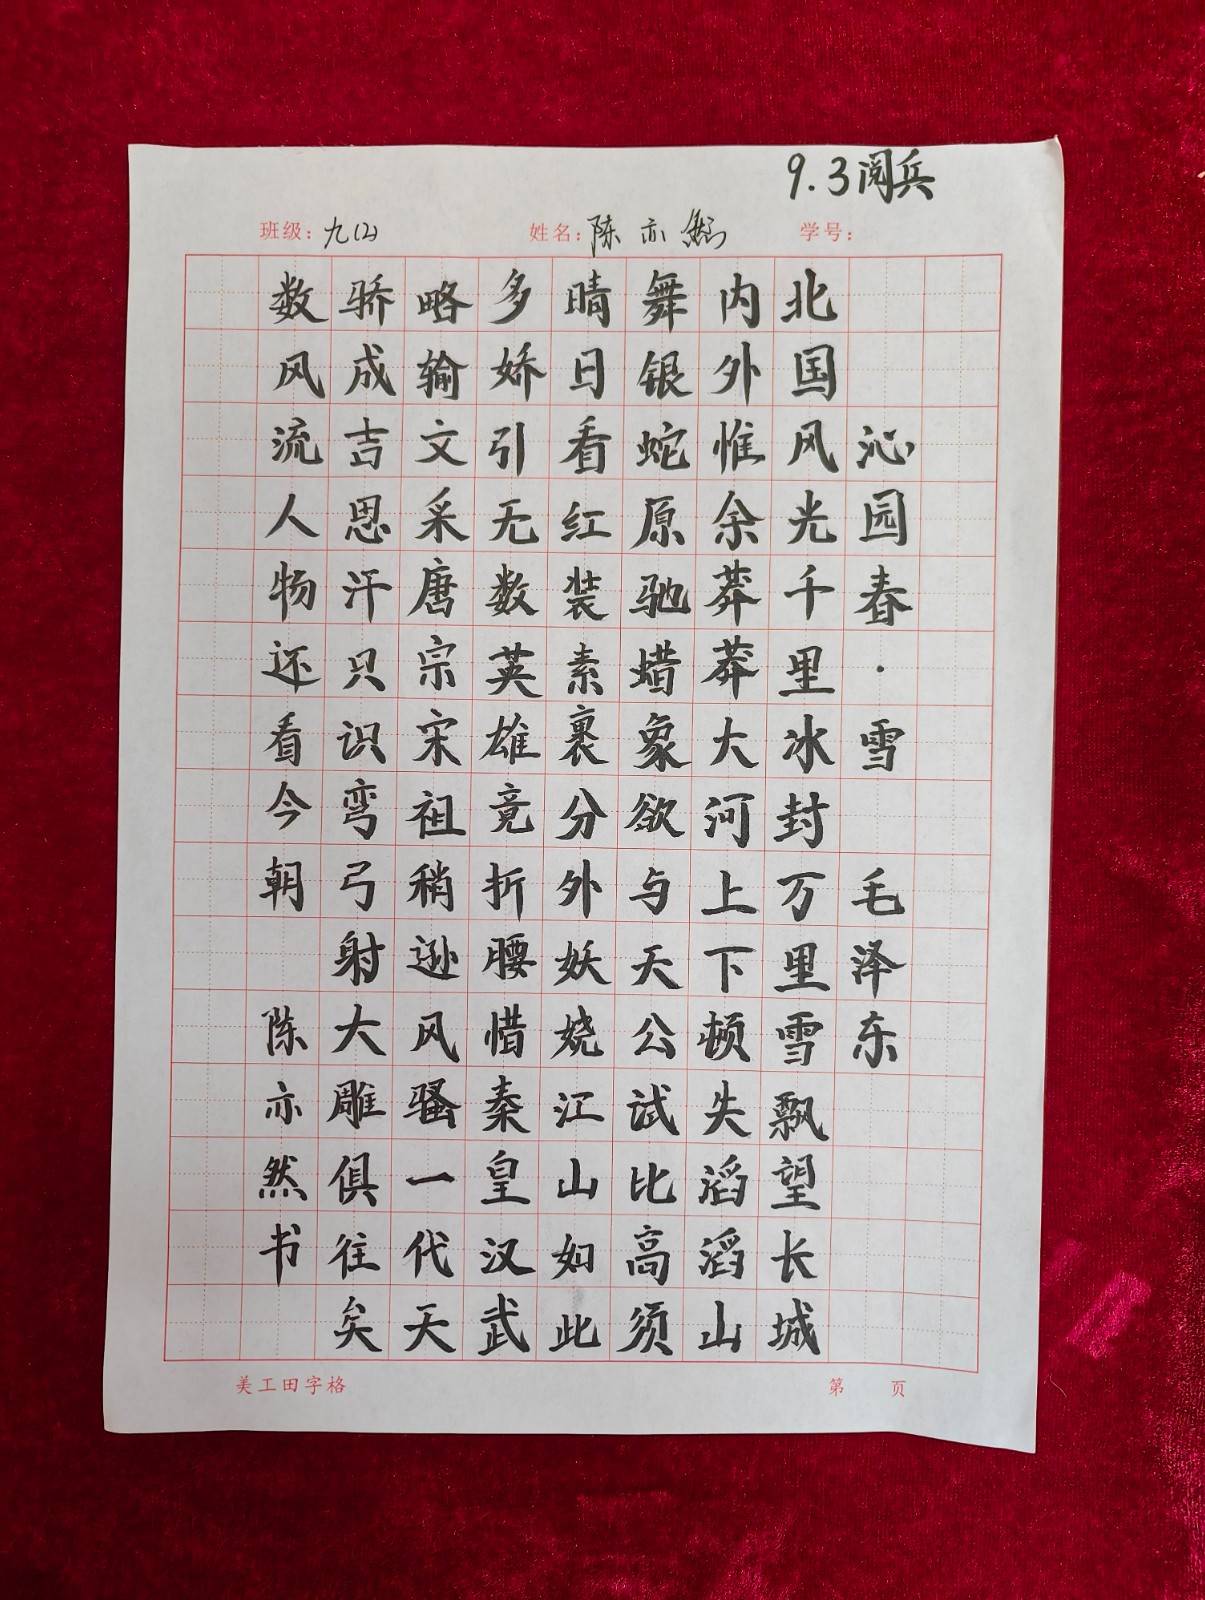 9.3阅兵
班级：九(2) 姓名：陈亦然 学号：
沁园春·雪 毛泽东
北国风光千里冰封万里雪飘望长城
内外惟余莽莽大河上下顿失滔滔山
舞银蛇原驰蜡象欲与天公试比高须
晴日看红装素裹分外妖娆江山如此
多娇引无数英雄竟折腰惜秦皇汉武
略输文采唐宗宋祖稍逊风骚一代天
骄成吉思汗只识弯弓射大雕俱往矣
数风流人物还看今朝 陈亦然书
美工田字格 第 页